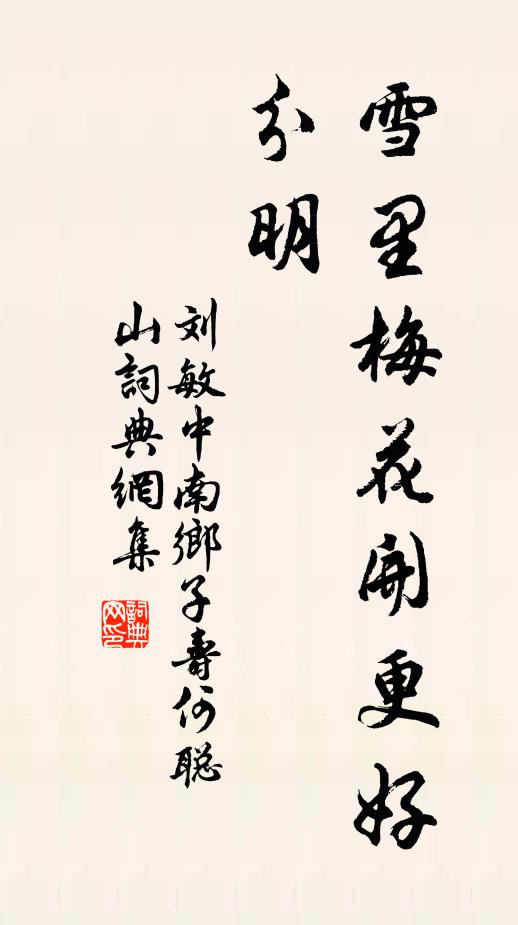 雪里梅花開更好
分明
刘敏中南鄉子壽何聪
山詞典網集
詞典
网印